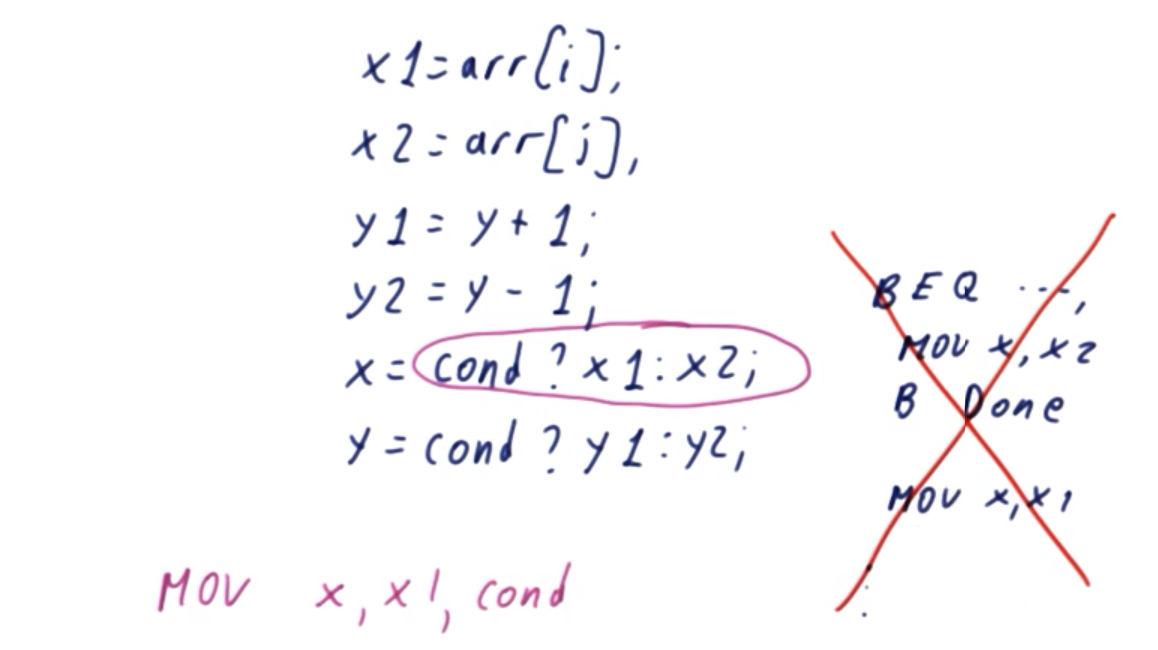 x1=arr[i];
x2=arr[j],
y1=y+1;
y2=y-1;
x=cond?x1:x2;
y=cond?y1:y2;
BEQ ...,
MOV x,x2
B Done
MOV x,x1
MOV x,x1,cond